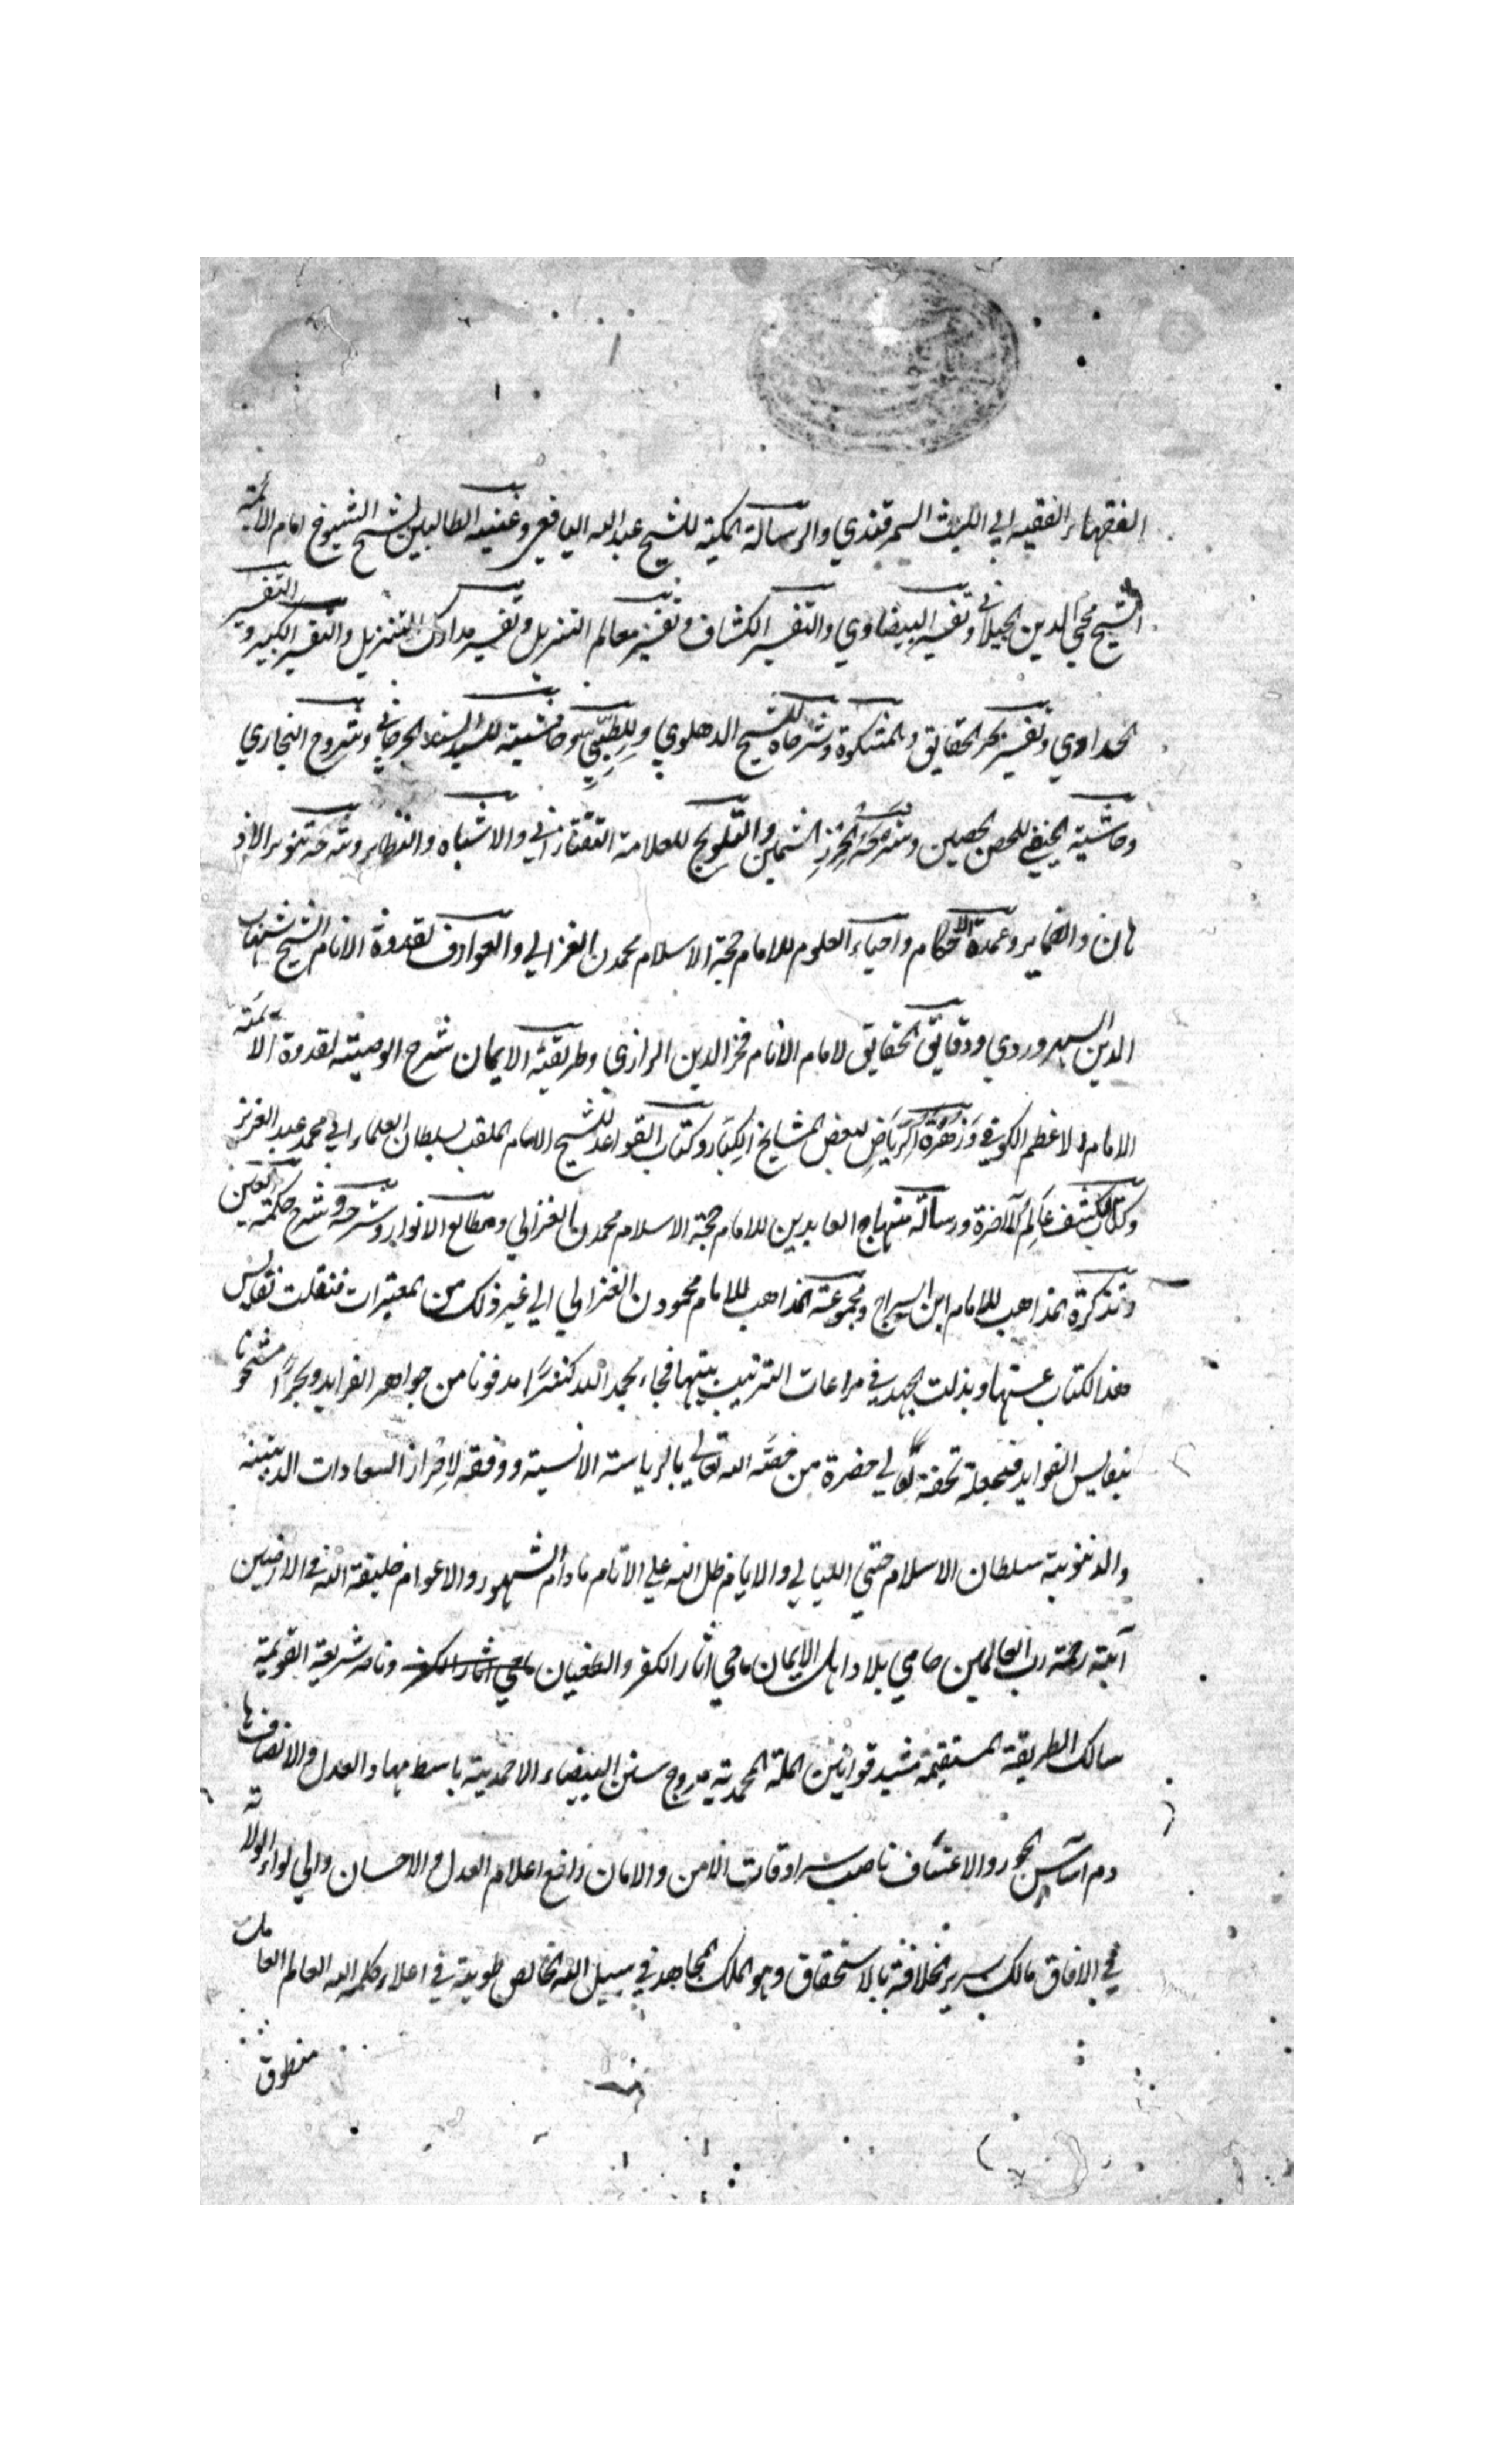 الفقهاء الفقيه ابي الليث السمرقندي والرسالة المكية للشيخ عبد الله اليافعي وغنية الطالبين لشيخ الشيوخ امام الائمة
الشيخ محي الدين الجيلاني وتفسير البيضاوي والتفسير الكشاف وتفسير معالم التنزيل وتفسير مدارك التنزيل والتفسير الكبير والتفسير
الحدادي وتفسير بحر الحقايق والمشكوة وشرحاه للشيخ الدهلوي وللطيبي وحاشيته للسيد السند الجرجاني وشروح البخاري
وحاشية الحنفي للحصن الحصين وشرحه الحرز الثمين والتلويح للعلامة التفتازاني والاشباه والنظاير وشرحه تنوير الاذ
هان والضماير وعمدة الاحكام واحياء العلوم للامام حجة الاسلام محمد ن الغزالي والعوارف لقدوة الانام الشيخ شهاب
الدين السهروردي ودقايق الحقايق لامام الانام فخر الدين الرازي وطريقة الايمان شرح الوصية لقدوة الائمة
الامام الاعظم الكوفي وزهرة الرياض لبعض المشايخ الكبار وكتاب القواعد للشيخ الامام الملقب بسلطان العلماء ابي محمد عبد العزيز
وكتاب كشف عالم الآخرة ورسالة منهاج العابدين للامام حجة الاسلام محمد ن الغزالي ومطالع الانوار وشرحه وشرح حكمة العين
وتذكرة المذاهب للامام ابن السراج ومجموعة المذاهب للامام محمود ن الغزالي الي غير ذلك من المعتبرات فنقلت نفايس
هذا الكتاب عنها وبذلت الجهد في مراعات الترتيب بينها فجاء بحمد الله كنزا مدفونا من جواهر الفرايد وبحرا مشحونا
بنفايس الفوايد فنجعله تحفة الي حضرة من خصه الله تعالي بالرياسة الانسية ووفقه لاحراز السعادات الدينية
والدنيوية سلطان الاسلام حتي الليالي والايام ظل الله علي الانام مادام الشهور والاعوام خليفة الله في الارضين
آية رحمة رب العالمين حامي بلاد اهل الايمان ماحي اثار الكفر والطغيان ماحي اثار الكفر وناصر شريعة القويمة
سالك الطريقة المستقيمة مشيد قوانين الملة المحمدية مروج سنن البيضاء الاحمدية باسط مهاد العدل والانصاف ها
دم اساس الجور والاعتساف ناصب سرادقات الامن والامان رافع اعلام العدل والاحسان والي لواء الولاية
في الافاق مالك سرير الخلافة بالاستحقاق وهو الملك المجاهد في سبيل الله الخالص طويته في اعلاء كلمة الله العالم العامل
منطوق